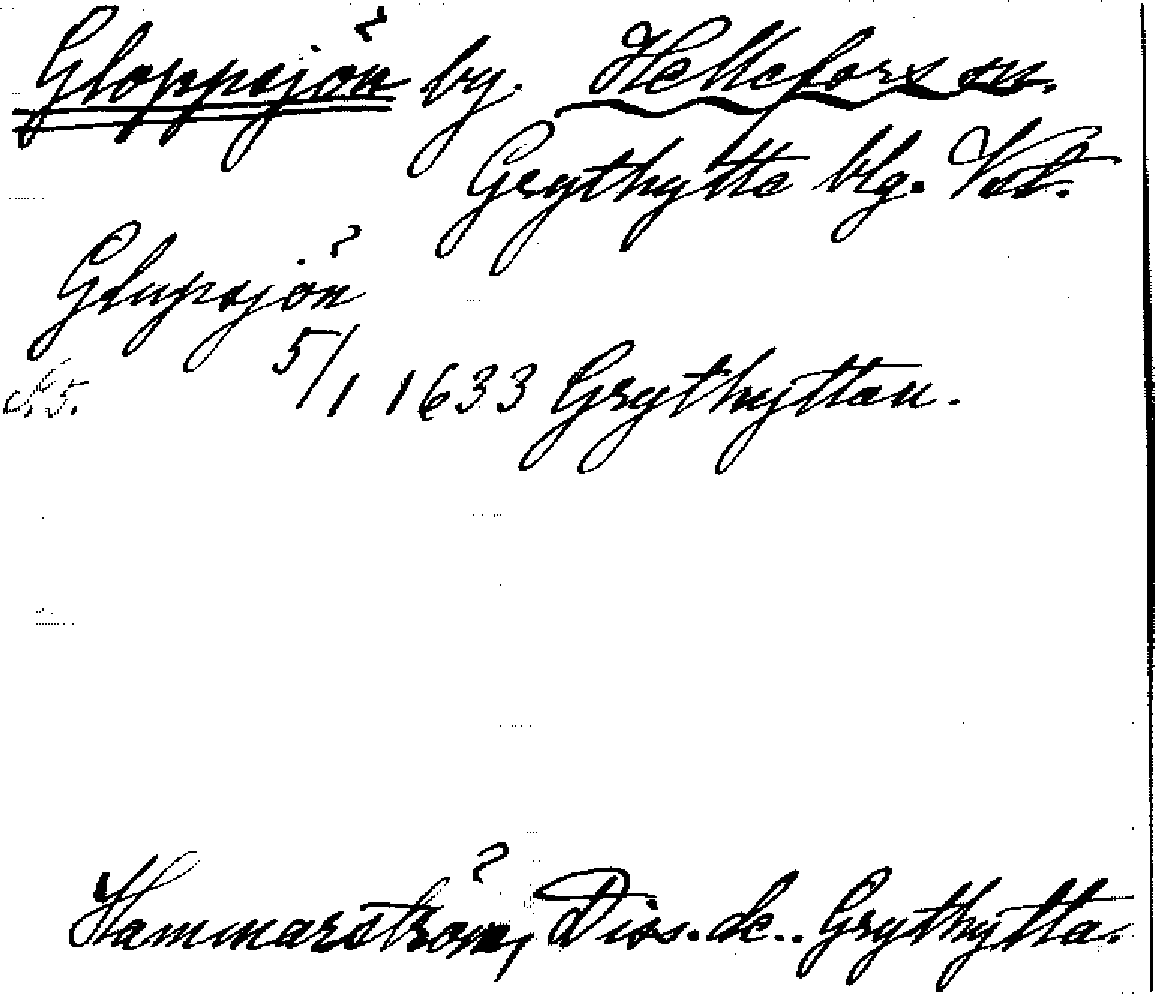 Gloppsjön by. Hellefors sn.
Grythytte blg. Vstl.
Glupsjön
5/1 1633 Grythyttan.
Hammarström, Diss. de.. Grythytta.